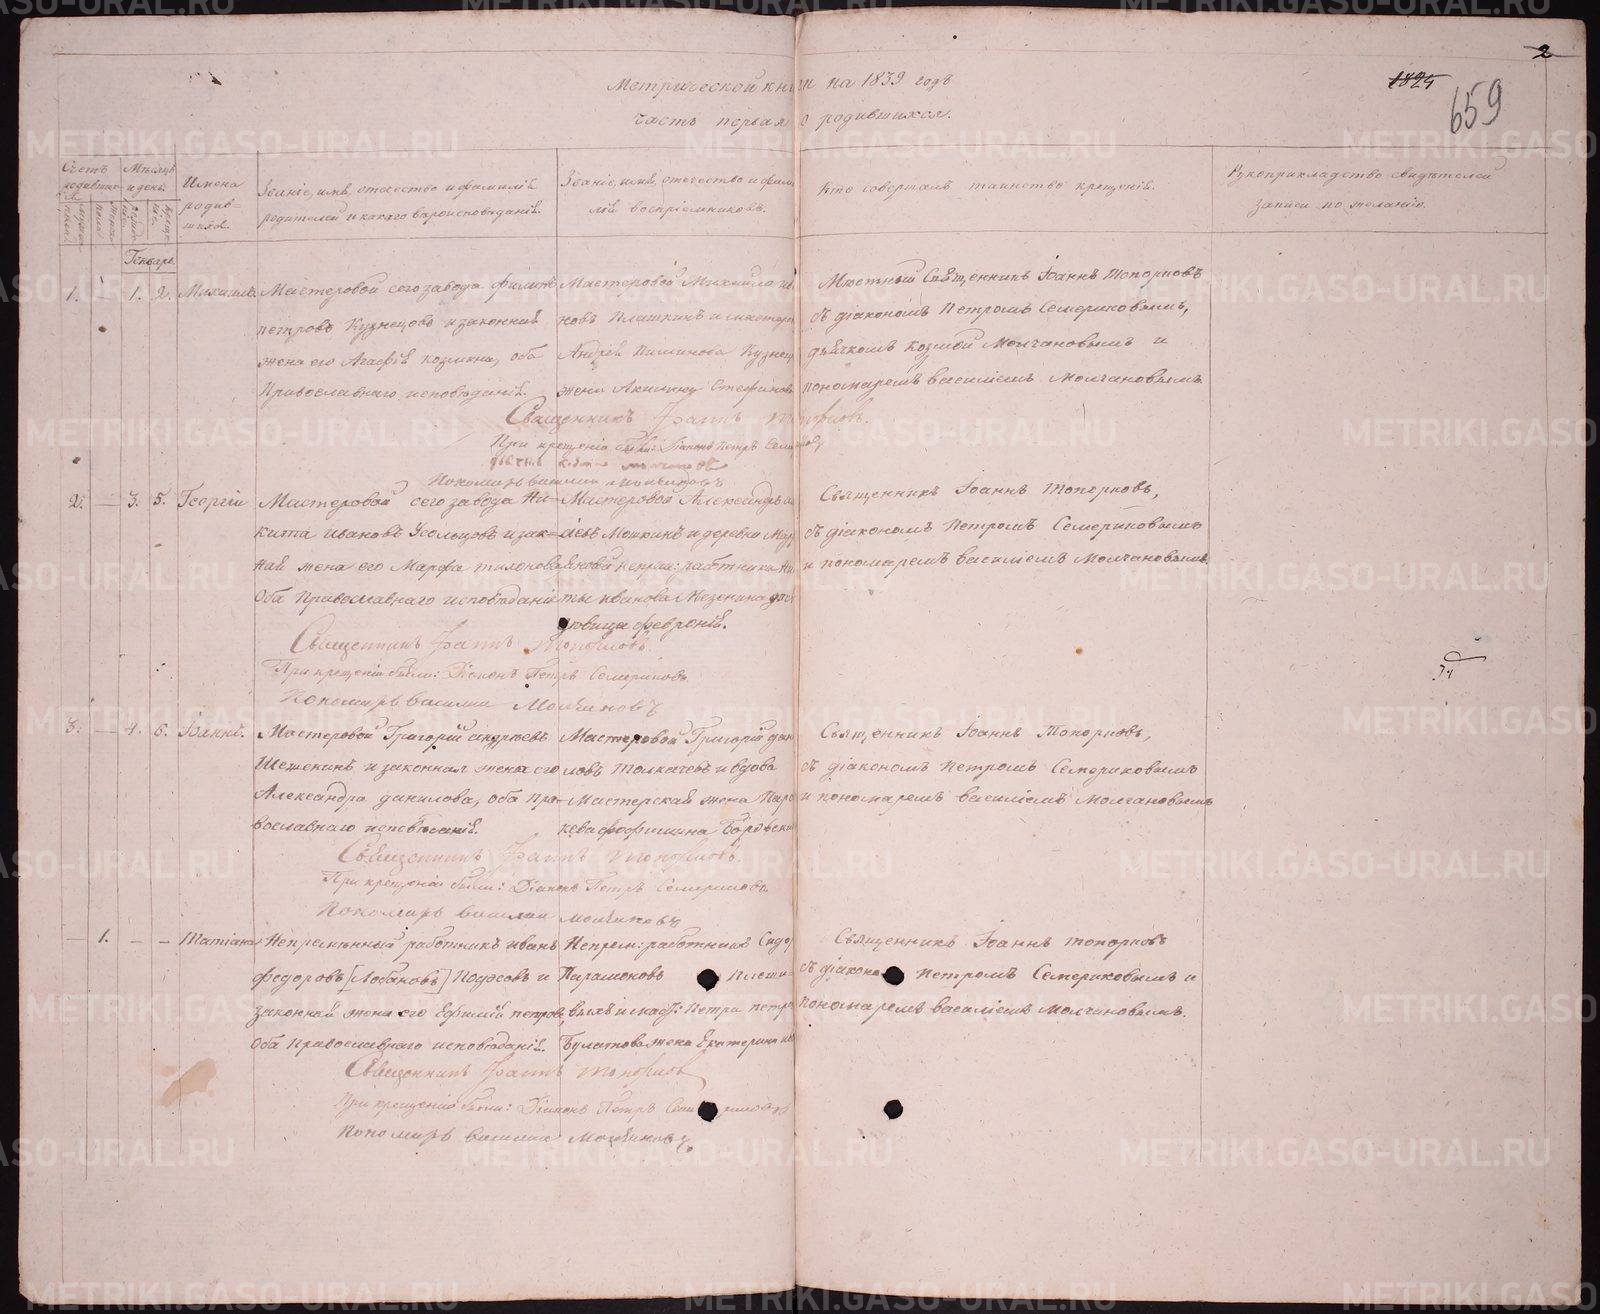 2
Метрической книги на 1839 годъ
1824
659
часть первая о родившихся.
Счетъ родившихся
Мѣсяцъ и день
Имена родившихся.
Званіе, имя, отчество и фамилія родителей и какого вѣроисповѣданія.
Званіе, имя, отчество и фамилія воспріемниковъ.
Кто совершалъ таинство крещенія.
Рукоприкладство свидѣтелей записи по желанію.
Генварь.
1. — 1. 2. Михаилъ
Мастеровой сего завода Филипъ
петровъ Кузнецовъ и законная
жена его Агафія козмина, оба
Православнаго исповѣданія.
Мастеровой Михайло
новъ Плашкинъ и мастеро
Андрея Пименова Кузнец
жена Акилина Стефанов
Мѣстный Священникъ Іоаннъ Топорковъ
съ діакономъ Петромъ Семериковымъ,
дьячкомъ Козмой Молчановымъ и
пономаремъ василіемъ Молчановымъ.
Священникъ Іоаннъ Топорковъ.
При крещеніи были: Діаконъ Петръ Семериковъ,
Пономарь василии Молчановъ
2. — 3. 5. Георгій
Мастеровой сего завода Ни-
кита ивановъ Усольцовъ и закон-
ная жена его Марфа тихонова
Оба Православнаго исповѣданія
Мастеровой Александръ
сіевъ Мошкинъ и деревни
новой непрем: работника Ни
ты иванова Мезенина
дѣвица февронія.
Священникъ Іоаннъ Топорковъ,
съ діакономъ Петромъ Семериковымъ
и пономаремъ василіемъ Молчановымъ.
Священникъ Іоаннъ Топорковъ
При крещеніи были: Діаконъ Петръ Семериковъ
Пономарь василии Молчановъ
3. — 4. 6. Іоаннъ.
Мастеровой Григорій андреевъ
Шешенинъ и законная жена его
Александра данилова, оба пра-
вославнаго исповѣданія.
Мастеровой Григорій дан
ловъ Толкачевъ и вдова
Мастерская жена Пара
кева фофинина
Священникъ Іоаннъ Топорковъ,
съ діакономъ Петромъ Семериковымъ
и пономаремъ василіемъ Молчановымъ
Священникъ Іоаннъ Топорковъ.
При крещеніи были: Діаконъ Петръ Семериковъ
Пономарь василии Молчановъ
— 1. — — Татіана
Непремѣнный работникъ иванъ
федоровъ [Лобановъ] Подосовъ и
законная жена его Ефимія петрова,
Оба Православнаго исповѣданія.
Непрем: работникъ Сидор
Парамоновъ Плеши-
выхъ и маст: Петра петро
Булатова жена Екатерина
Священникъ Іоаннъ топорковъ
съ діакономъ Петромъ Семериковымъ и
пономаремъ василіемъ Молчановымъ.
Священникъ Іоаннъ Топорковъ
При крещеніи были: Діаконъ Петръ Семериковъ
Пономарь василии Молчановъ
METRIKI.GASO-URAL.RU